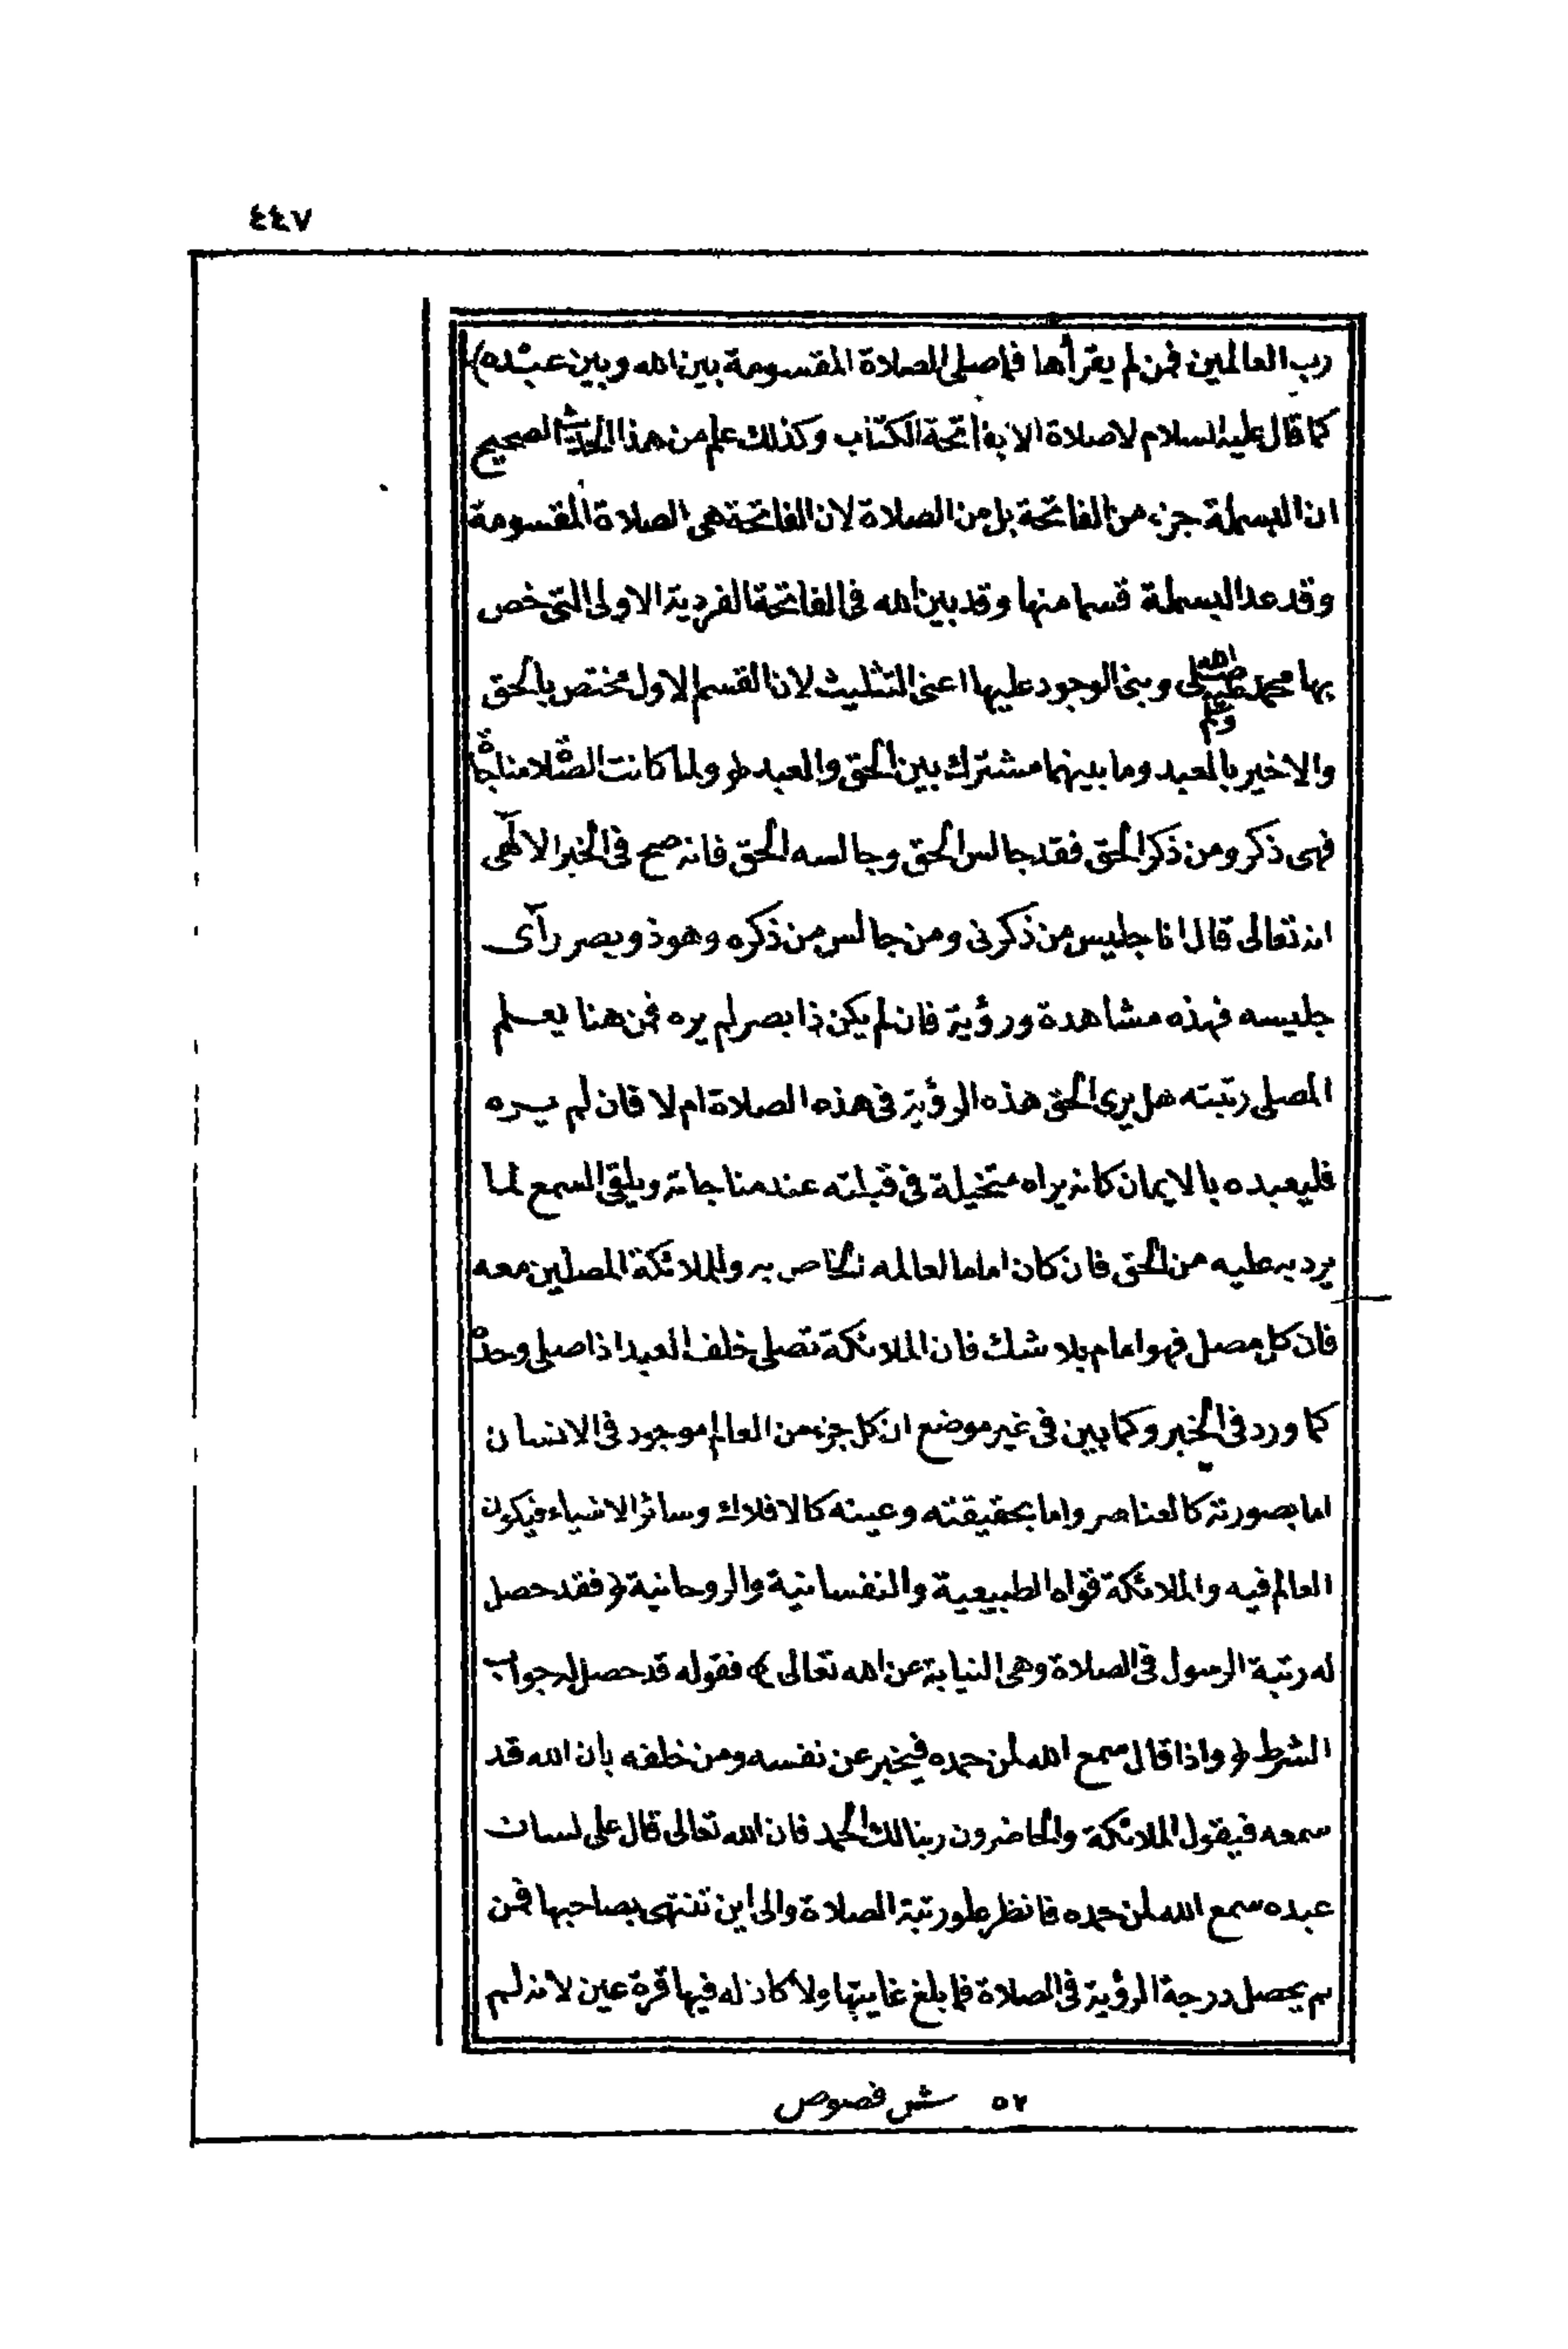 ٤٤٧
رب العالمين فمن لم يقرأها فما صلى الصلاة المقسومة بين الله وبين عبده)
كما قال عليه السلام لاصلاة الا بفاتحة الكتاب وكذلك علم من هذا الحديث الصحيح
ان البسملة جزء من الفاتحة بل من الصلاة لان الفاتحة هى الصلاة المقسومة
وقد عد البسملة قسما منها وقد بين الله فى الفاتحة الفردية الاولى التى خص
بها محمد صلى الله عليه وسلم وبنى الوجود عليها اعنى التثليث لان القسم الاول مختص بالحق
والاخير بالعبد وما بينهما مشترك بين الحق والعبد (ولما كانت الصلاة مناجاة
فهى ذكر ومن ذكر الحق فقد جالس الحق وجالسه الحق فانه صح فى الخبر الالٓهى
انه تعالى قال انا جليس من ذكرنى ومن جالس من ذكره وهو ذو بصر رآى
جليسه فهذه مشاهدة ورؤية فان لم يكن ذا بصر لم يره فمن هنا يعلم
المصلى رتبته هل يرى الحق هذه الرؤية فى هذه الصلاة ام لا فان لم يره
فليعبده بالايمان كانه يراه متخيلة فى قبلته عند مناجاته ويلقى السمع لما
يرد به عليه من الحق فان كان اماما لعالمه الخاص به وللملائكة المصلين معه
فان كل مصل فهو امام بلا شك فان الملائكة تصلى خلف العبد اذا صلى وحده
كما ورد فى الخبر وكما بين فى غير موضع ان كل جزء من العالم موجود فى الانسان
اما بصورته كالعناصر واما بحقيقته وعينه كالافلاك وسائر الاشياء فيكون
العالم فيه والملائكة قواه الطبيعية والنفسانية والروحانية (فقد حصل
له رتبة الرسول فى الصلاة وهى النيابة عن الله تعالى) فقوله قد حصل له جواب
الشرط (واذا قال سمع الله لمن حمده فيخبر عن نفسه ومن خلفه بان الله قد
سمعه فيقول الملائكة والحاضرون ربنا لك الحمد فان الله تعالى قال على لسان
عبده سمع الله لمن حمده فانظر علو رتبة الصلاة والى اين تنتهى بصاحبها فمن
لم يحصل درجة الرؤية فى الصلاة فما بلغ غايتها ولا كان له فيها قرة عين لانه لم
٥٢ ش فصوص